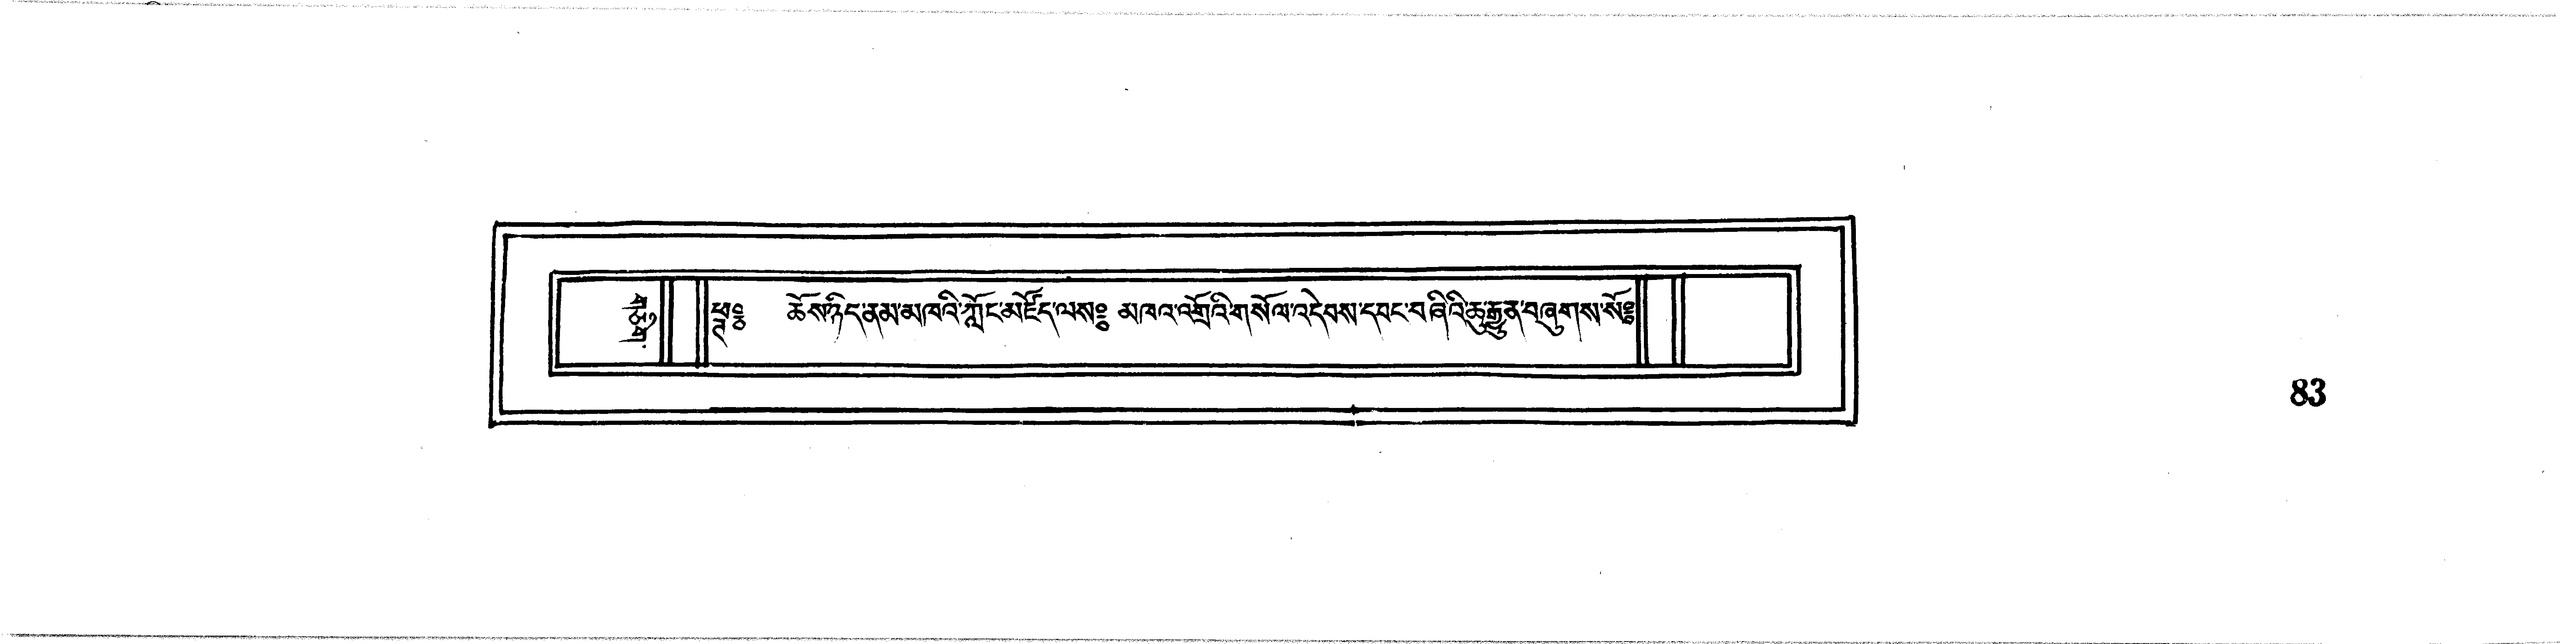 གཅིག
ཕྲ༔ ཆོས་ཉིད་ནམ་མཁའི་ཀློང་མཛོད་ལས༔ མཁའ་འགྲོའི་གསོལ་འདེབས་དབང་བཞིའི་ཆུ་རྒྱུན་བཞུགས་སོ༔
83